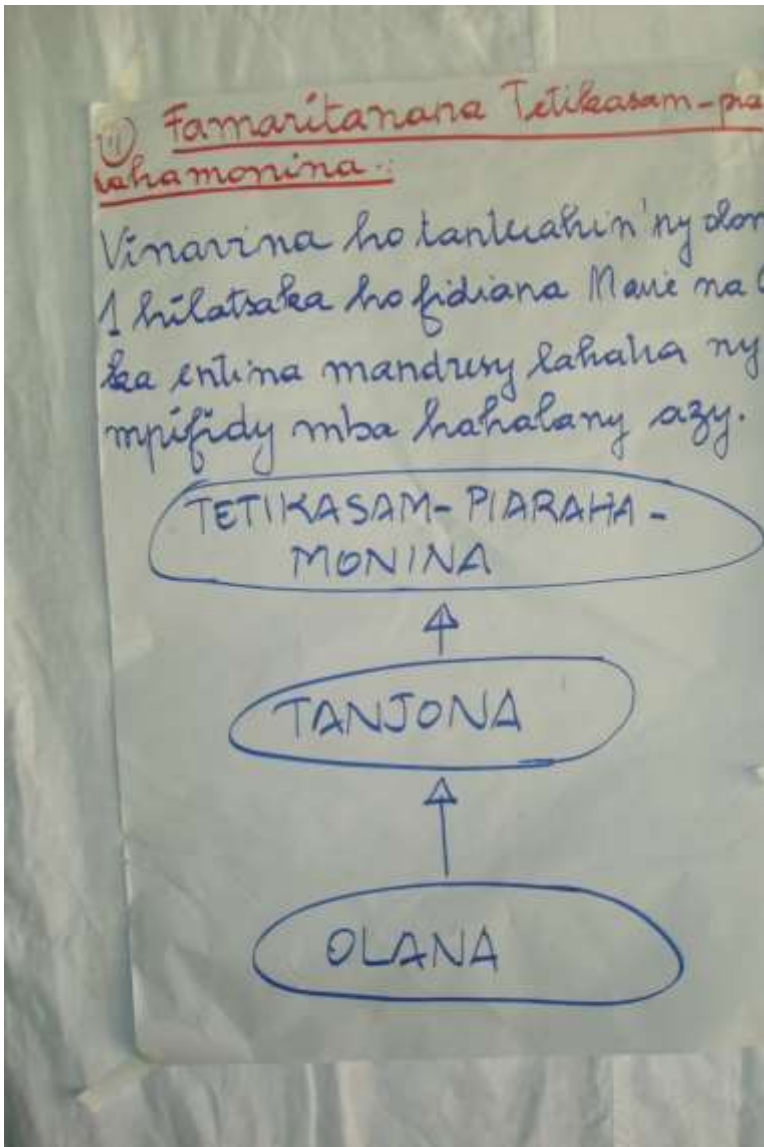 Famaritanana Tetikasam-pia
rahamonina :
Vinavina ho tanterahin'ny olon
1 hilatsaka ho fidiana Maire na
ka entina mandresy lahatra ny
mpifidy mba hahalany azy.
TETIKASAM-PIARAHA-
MONINA
TANJONA
OLANA